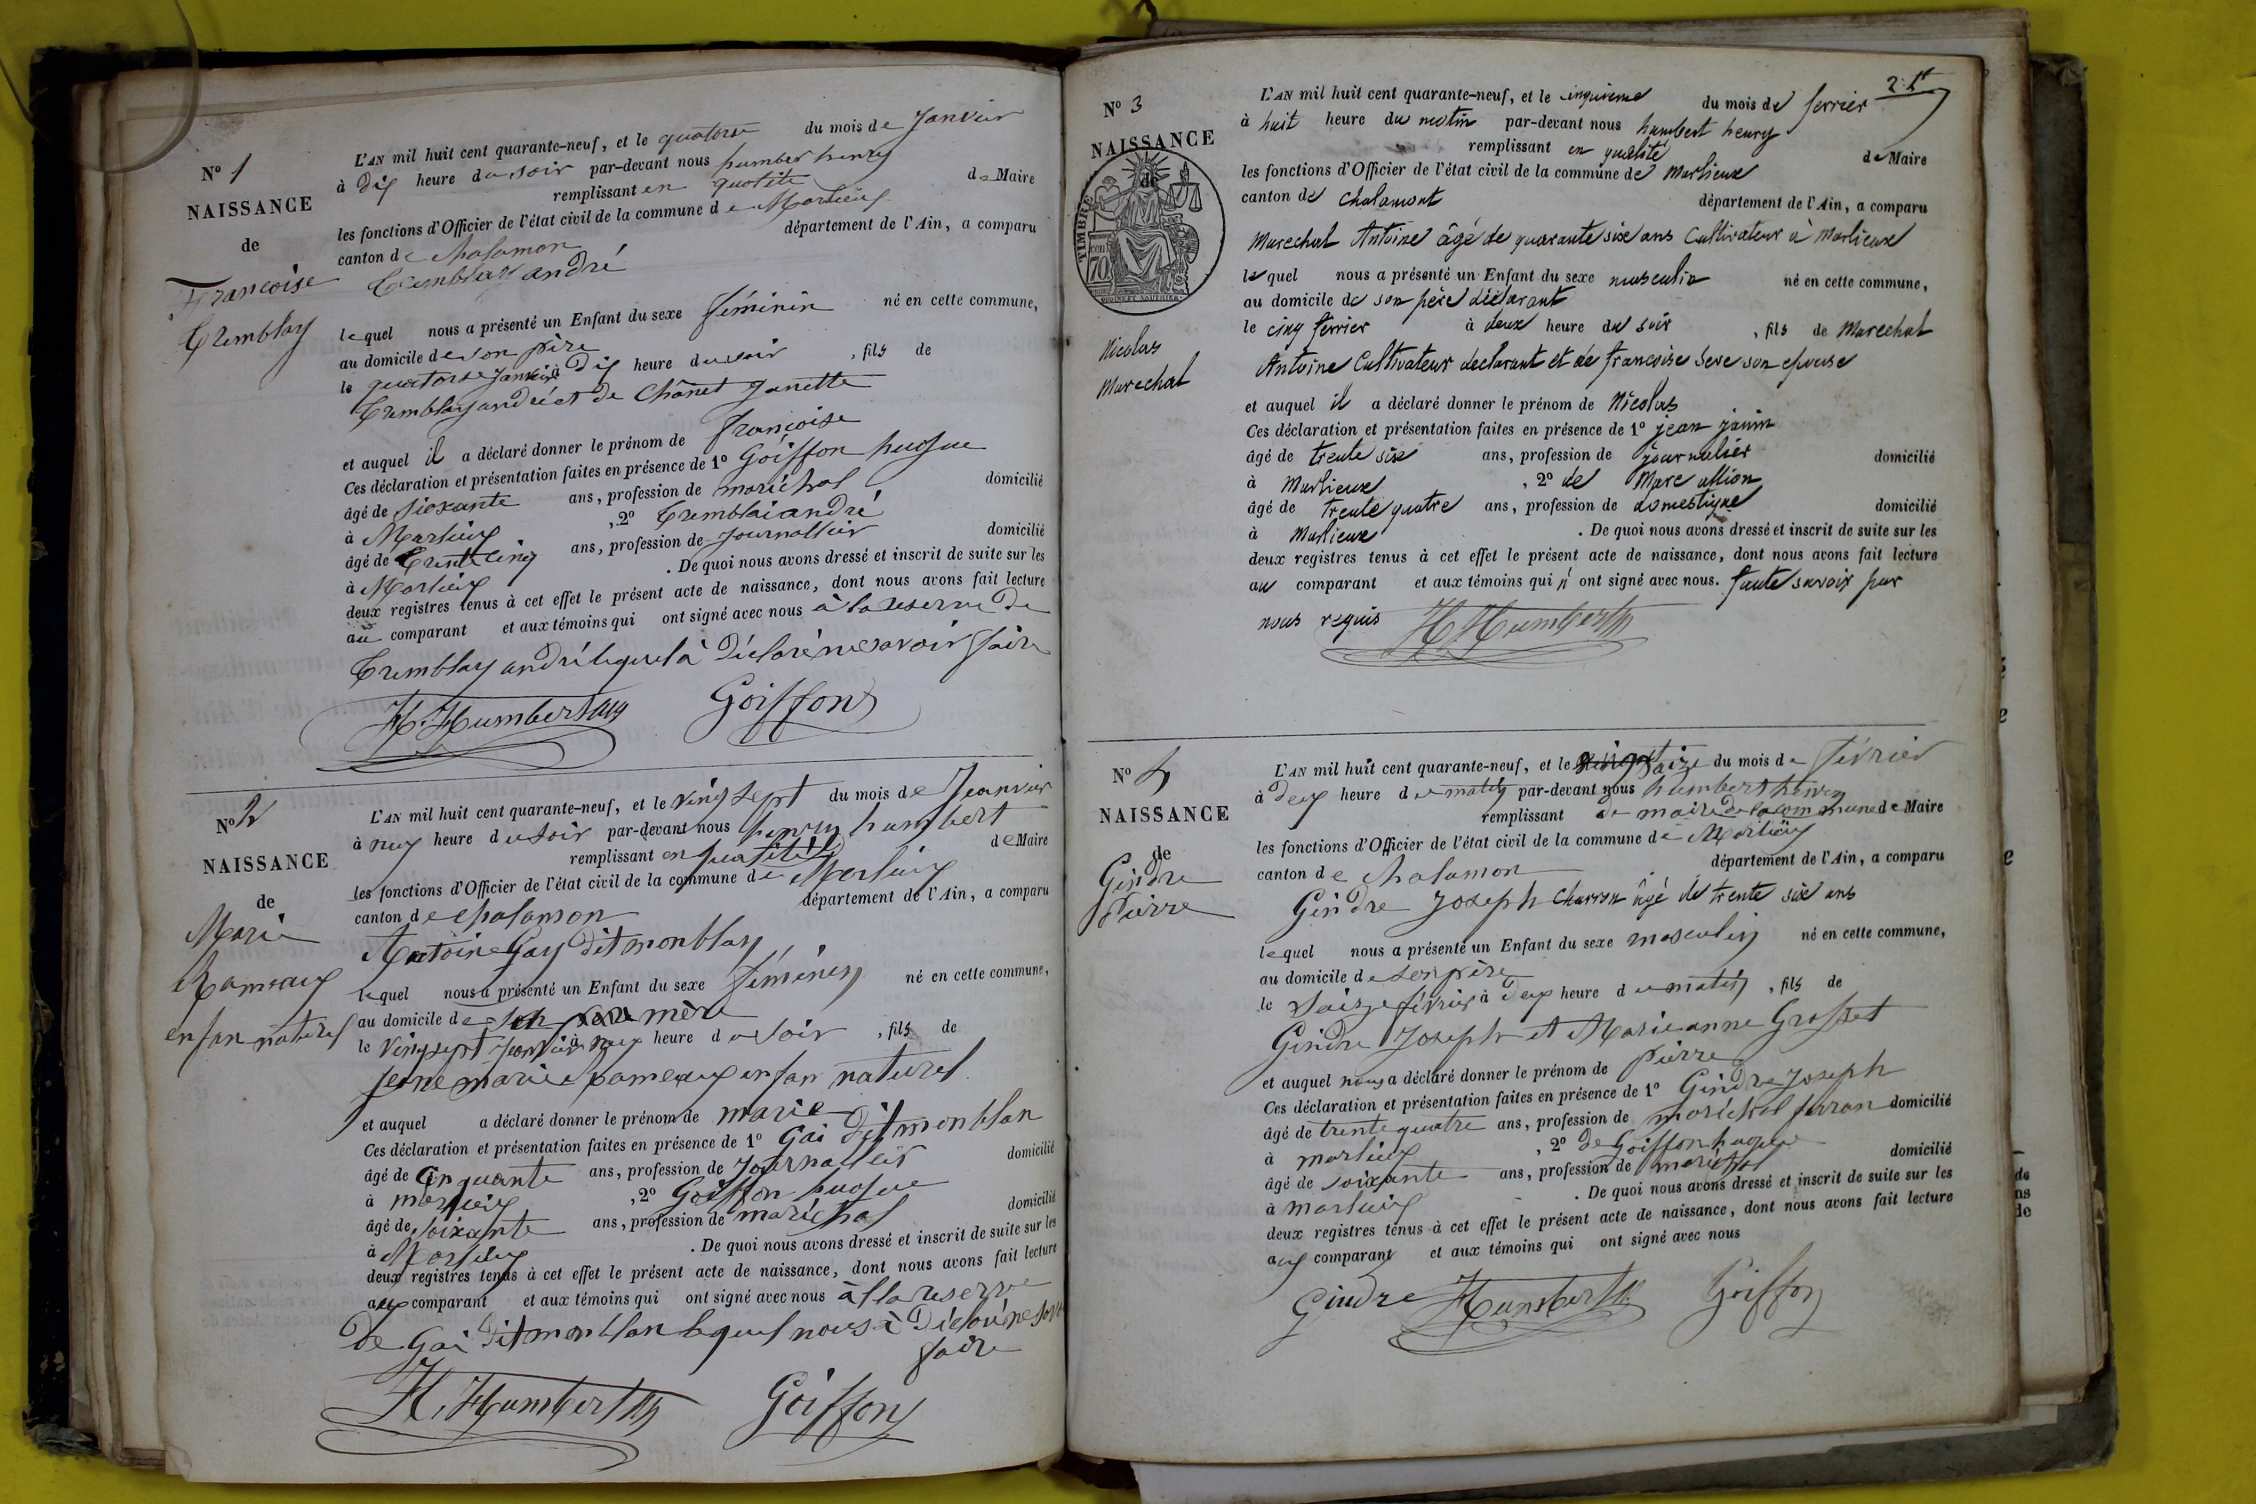 N° 1
NAISSANCE
de
Françoise
Tremblay
L'AN mil huit cent quarante-neuf, et le quatorse du mois de Janvier
à dix heure du soir par-devant nous humber henry
remplissant en quotité de Maire
les fonctions d'Officier de l'état civil de la commune de Marlieux
canton de chalamon département de l'Ain, a comparu
Tremblay andré
lequel nous a présenté un Enfant du sexe féminin né en cette commune,
au domicile de son père
le quatorse Janvier à dix heure du soir , fils de
Tremblay andré et de Chânet Janette
et auquel il a déclaré donner le prénom de françoise
Ces déclaration et présentation faites en présence de 1° Goiffon hugue
âgé de siexante ans, profession de maréchal domicilié
à Marlieux , 2° Tremblai andré
âgé de Trente cinq ans, profession de Journallier domicilié
à Marlieux . De quoi nous avons dressé et inscrit de suite sur les
deux registres tenus à cet effet le présent acte de naissance, dont nous avons fait lecture
au comparant et aux témoins qui ont signé avec nous à la reserve de
Tremblay andré lequel à déclaré ne savoir faire
H. Humbert Goiffon
N° 2
NAISSANCE
de
Marie
Rameaux
enfan naturel
L'AN mil huit cent quarante-neuf, et le vingt sept du mois de Jeanvier
à neuf heure du soir par-devant nous henry humbert
remplissant en qualité de Maire
les fonctions d'Officier de l'état civil de la commune de Marlieux
canton de chalamon département de l'Ain, a comparu
Antoine Gay dit monblan
lequel nous a présenté un Enfant du sexe féminin né en cette commune,
au domicile de mère
le vingt sept Janvier à neuf heure du soir , fils de
Jene marie pameaux enfan naturel
et auquel a déclaré donner le prénom de marie
Ces déclaration et présentation faites en présence de 1° Gai dit monblan
âgé de cinquante ans, profession de Journallier domicilié
à marlieux , 2° Goiffon hugue
âgé de soixante ans, profession de maréchal domicilié
à Marlieux . De quoi nous avons dressé et inscrit de suite sur les
deux registres tenus à cet effet le présent acte de naissance, dont nous avons fait lecture
aux comparant et aux témoins qui ont signé avec nous à lla reserve
de Gai dit monblan lequel nous à déclaré ne
faire
H. Humbert Goiffon
2.
N° 3
NAISSANCE
de
TIMBRE
70
Nicolas
Marechal
L'AN mil huit cent quarante-neuf, et le cinquieme du mois de fevrier
à huit heure du matin par-devant nous humbert henry
remplissant en qualité de Maire
les fonctions d'Officier de l'état civil de la commune de Marlieux
canton de chalamont département de l'Ain, a comparu
Marechal Antoine âgé de quarante six ans Cultivateur à Marlieux
lequel nous a présenté un Enfant du sexe masculin né en cette commune,
au domicile de son père déclarant
le cinq fevrier à deux heure du soir , fils de Marechal
Antoine Cultivateur declarant et de francoise Seve son epouse
et auquel il a déclaré donner le prénom de Nicolas
Ces déclaration et présentation faites en présence de 1° jean janin
âgé de trente six ans, profession de journalier domicilié
à Marlieux , 2° de Marc allion
âgé de trente quatre ans, profession de domestique domicilié
à Marlieux . De quoi nous avons dressé et inscrit de suite sur les
deux registres tenus à cet effet le présent acte de naissance, dont nous avons fait lecture
au comparant et aux témoins qui n'ont signé avec nous. faute savoir par
nous requis H. Humbert
N° 4
NAISSANCE
de
Gindre
Pierre
L'AN mil huit cent quarante-neuf, et le saize du mois de février
à deux heure du matin par-devant nous humbert henry
remplissant de maire de la commune de Maire
les fonctions d'Officier de l'état civil de la commune de Marlieux
canton de chalamon département de l'Ain, a comparu
Gindre Joseph charron âgé de trente six ans
lequel nous a présenté un Enfant du sexe masculin né en cette commune,
au domicile de son père
le saize février à deux heure du matin , fils de
Gindre Joseph et Marie anne Grosset
et auquel nous a déclaré donner le prénom de pierre
Ces déclaration et présentation faites en présence de 1° Gindre Joseph
âgé de trente quatre ans, profession de maréchal ferran domicilié
à marlieux , 2° de Goiffon hugue
âgé de soixante ans, profession de maréchal domicilié
à marlieux . De quoi nous avons dressé et inscrit de suite sur les
deux registres tenus à cet effet le présent acte de naissance, dont nous avons fait lecture
aux comparant et aux témoins qui ont signé avec nous
Gindre Humbert Goiffon